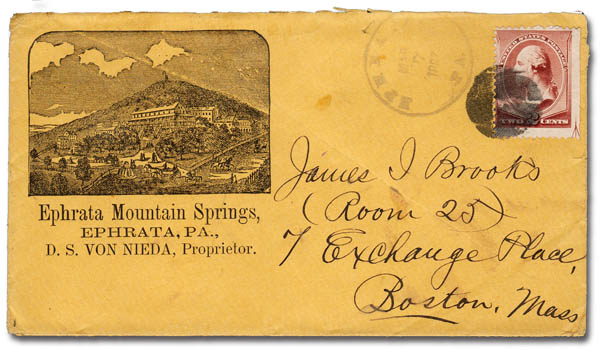 Ephrata Mountain Springs,
EPHRATA, PA.,
D. S. VON NIEDA, Proprietor.
PA.
UNITED STATES POSTAGE
TWO CENTS
James I Brooks
(Room 25)
7 Exchange Place,
Boston, Mass